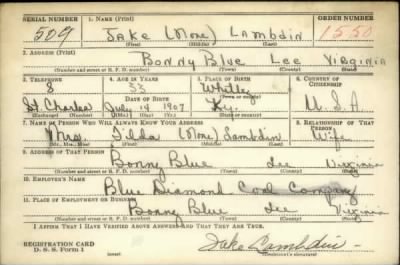 SERIAL NUMBER 1. NAME (Print) ORDER NUMBER
509 Jake (None) Lambdin 1550
(First) (Middle) (Last)
2. ADDRESS (Print)
Bonny Blue Lee Virginia
(Number and street or R. F. D. number) (Town) (County) (State)
3. TELEPHONE 4. AGE IN YEARS 5. PLACE OF BIRTH 6. COUNTRY OF CITIZENSHIP
8 33 Whitley
DATE OF BIRTH (Town or county)
St Charles July 14 1907 Ky. U.S.A.
(Exchange) (Number) (Mo.) (Day) (Yr.) (State or country)
7. NAME OF PERSON WHO WILL ALWAYS KNOW YOUR ADDRESS 8. RELATIONSHIP OF THAT PERSON
Mrs. Tilda (None) Lambdin Wife
(Mr., Mrs., Miss) (First) (Middle) (Last)
9. ADDRESS OF THAT PERSON
Bonny Blue Lee Virginia
(Number and street or R. F. D. number) (Town) (County) (State)
10. EMPLOYER'S NAME
Blue Diamond Coal Company
11. PLACE OF EMPLOYMENT OR BUSINESS
Bonny Blue Lee Virginia
(Number and street or R. F. D. number) (Town) (County) (State)
I AFFIRM THAT I HAVE VERIFIED ABOVE ANSWERS AND THAT THEY ARE TRUE.
REGISTRATION CARD
D. S. S. Form 1 Jake Lambdin